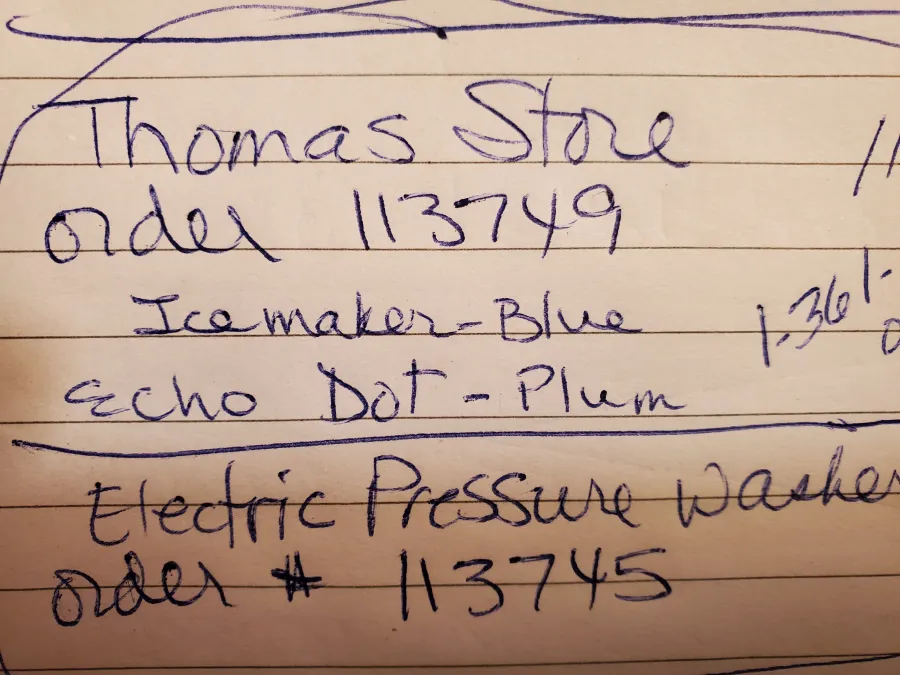 Thomas Store
order 113749
Icemaker-Blue
1.36
Echo Dot - Plum
Electric Pressure Washer
order # 113745